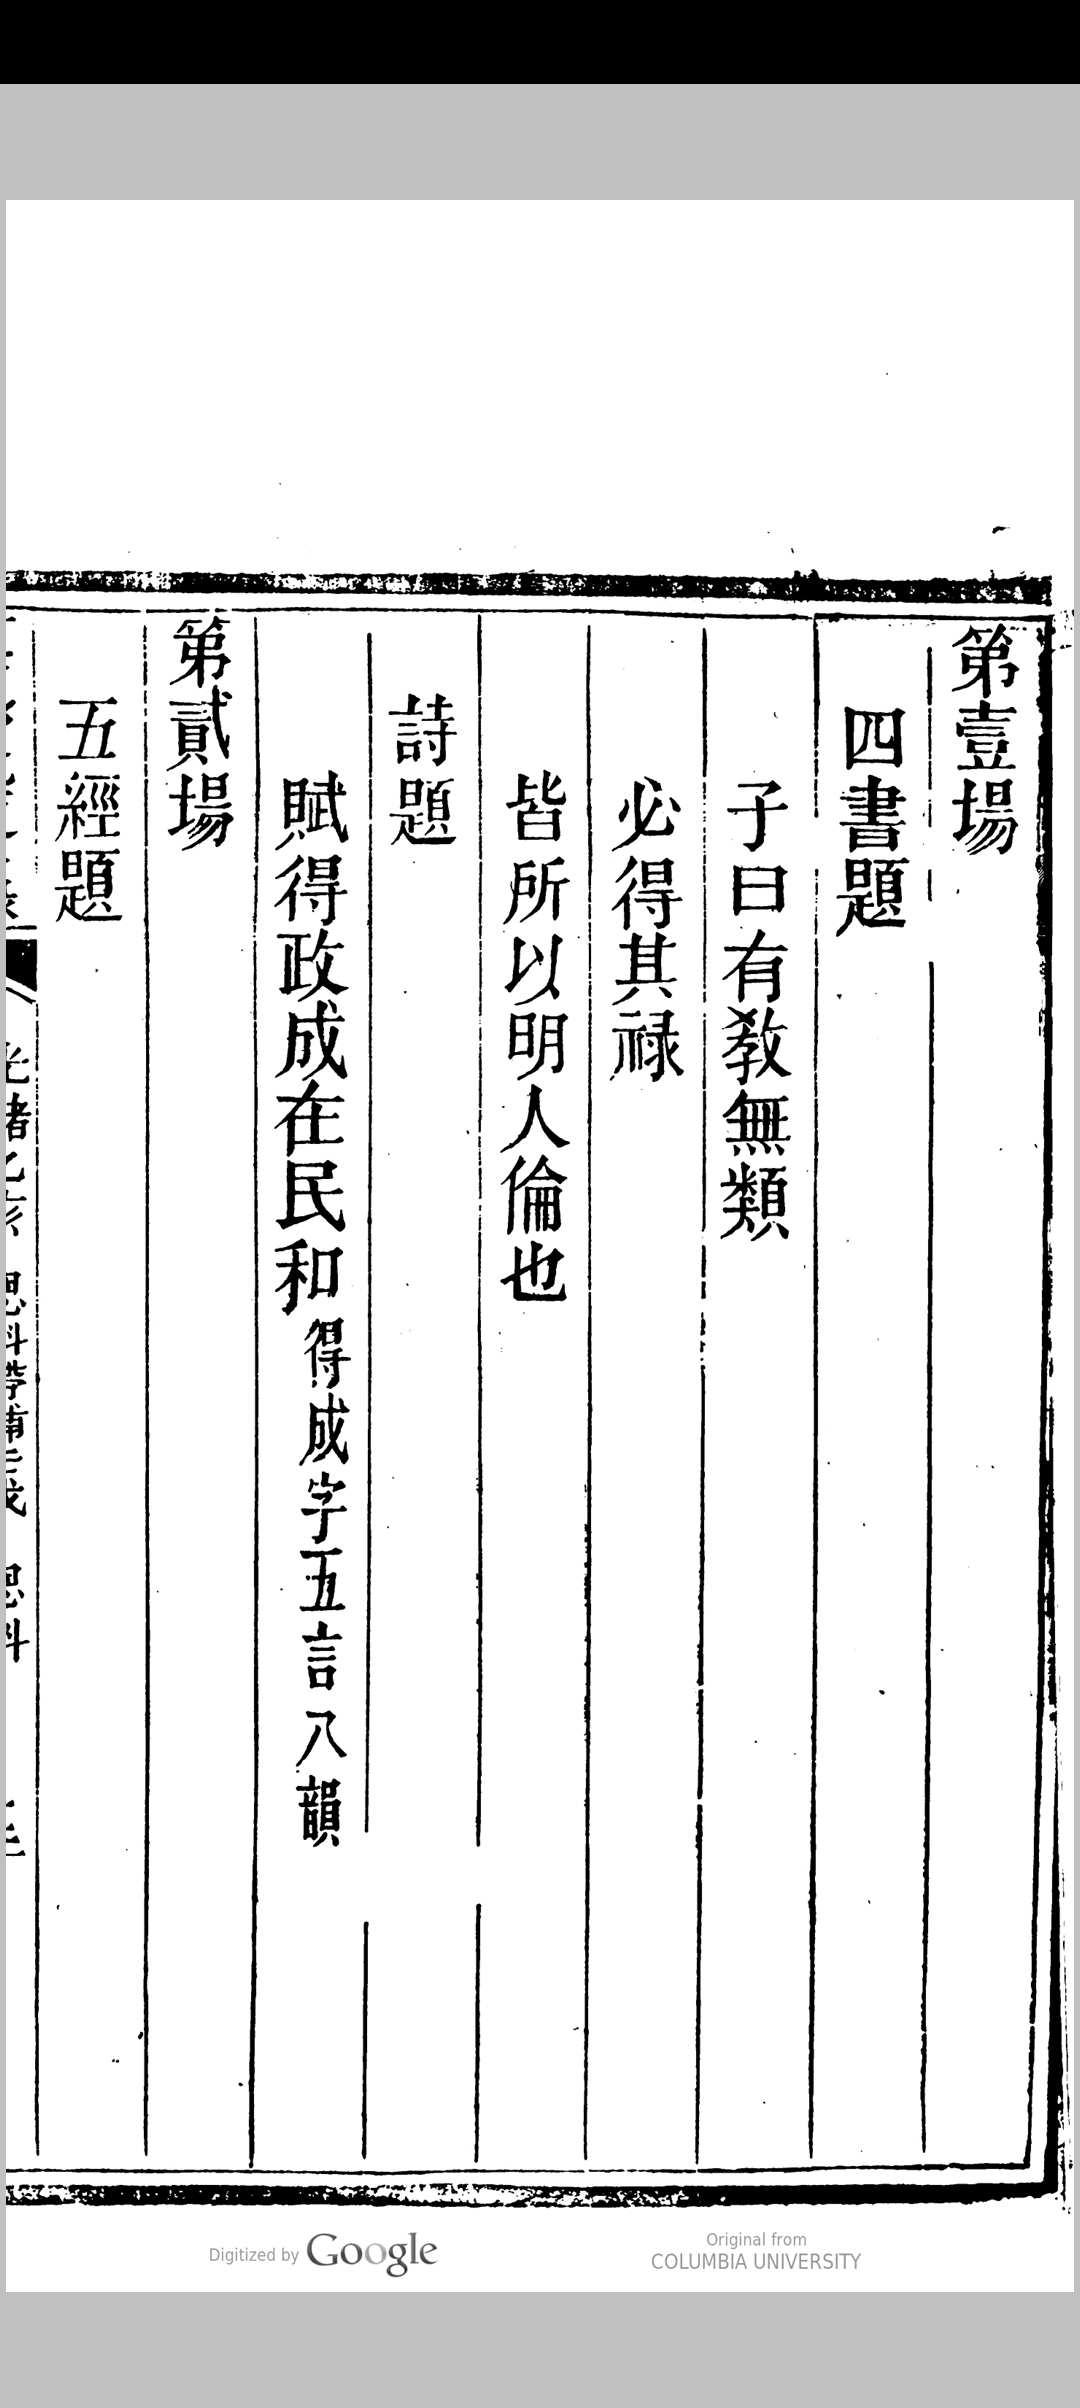 第壹場
四書題
子曰有敎無類
必得其祿
皆所以明人倫也
詩題
賦得政成在民和得成字五言八韻
第貳場
五經題
Digitized by Google
Original from
COLUMBIA UNIVERSITY